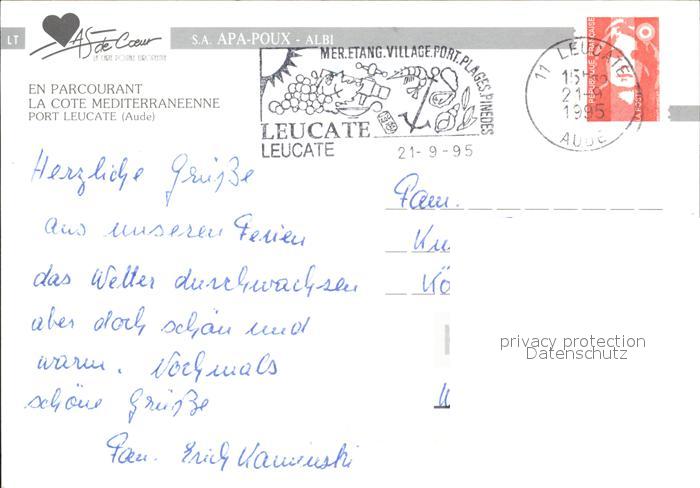 LT
AS de Cœur
S.A. APA-POUX - ALBI
EN PARCOURANT
LA COTE MEDITERRANEENNE
PORT LEUCATE (Aude)
MER.ETANG.VILLAGE.PORT.PLAGES.PINEDES
LEUCATE
LEUCATE
21-9-95
11 LEUCATE
21-
1995
AUDE
REPUBLIQUE FRANCAISE
Herzliche Grüße
aus unseren Ferien
das Wetter durchwachsen
aber doch schön und
warm. Nochmals
schöne Grüße
Fam. Erich Kaminski
Fam.
Ku
Kö
privacy protection
Datenschutz